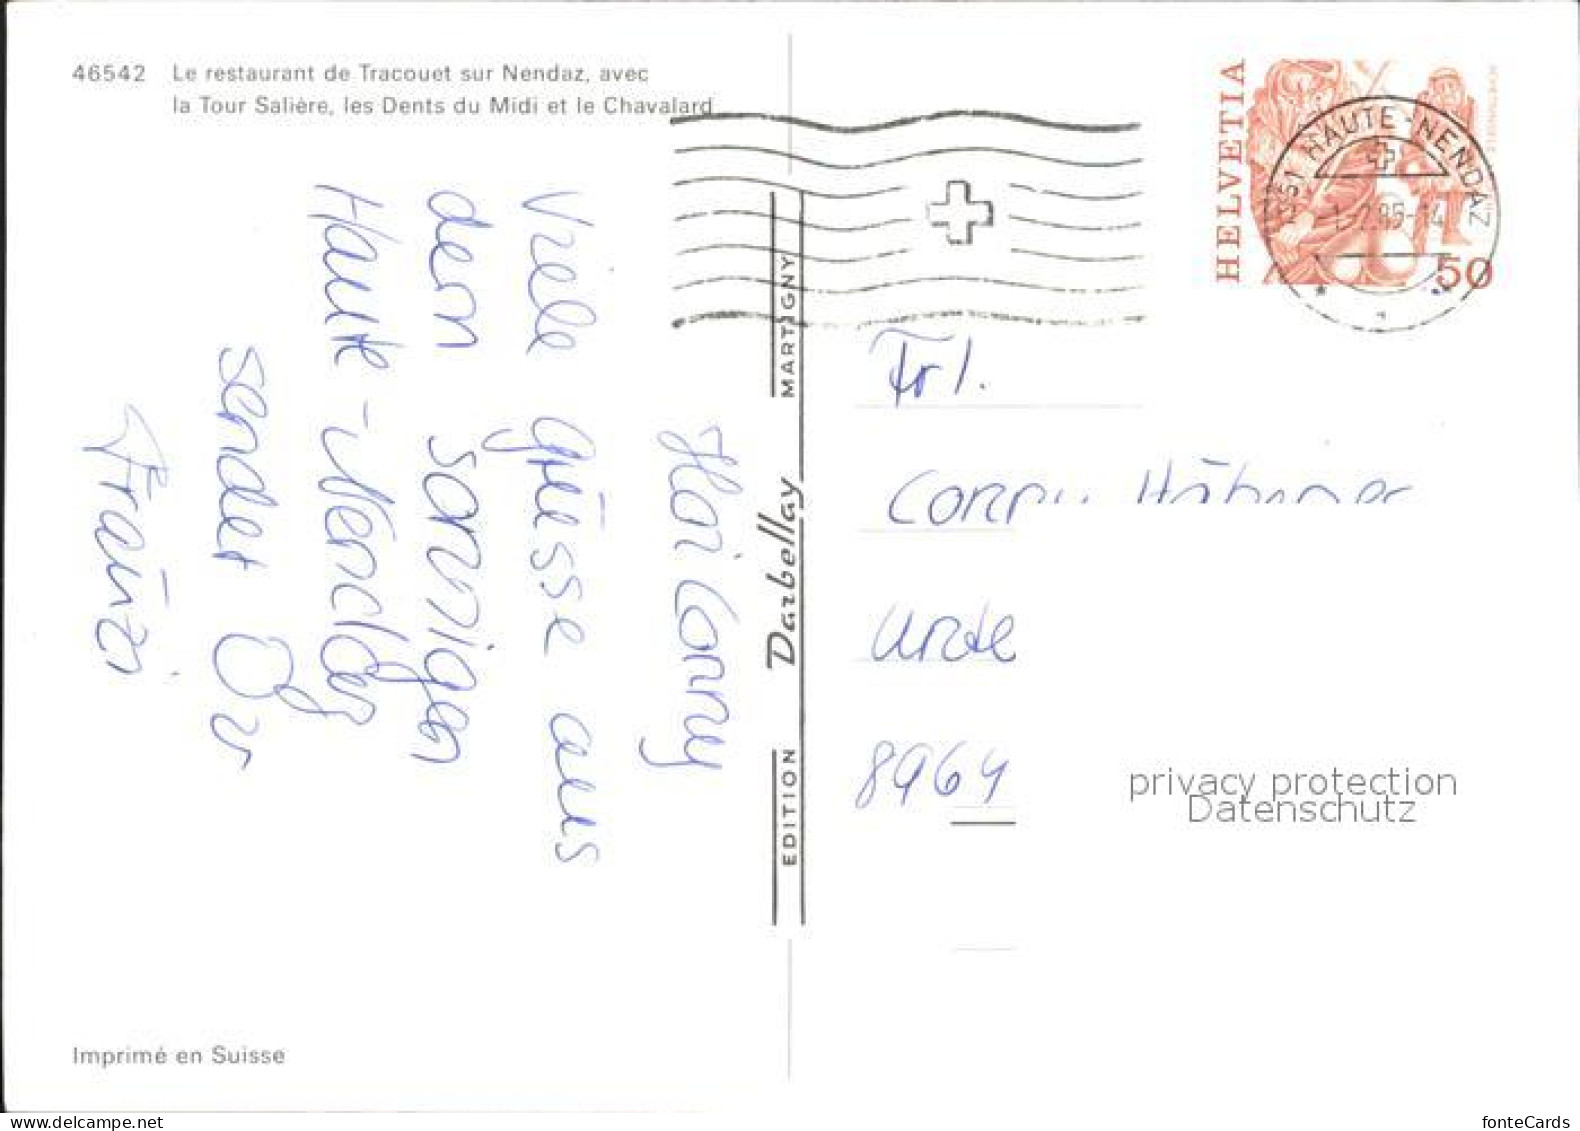 46542 Le restaurant de Tracouet sur Nendaz, avec
la Tour Salière, les Dents du Midi et le Chavalard
Hoi Conny
Viele Grüsse aus
dem sonnigen
Haute-Nendaz
sendet Dir
Fränzi
EDITION Darbellay MARTIGNY
HELVETIA
50
HAUTE-NENDAZ
Frl.
8964
privacy protection
Datenschutz
Imprimé en Suisse
fonteCards